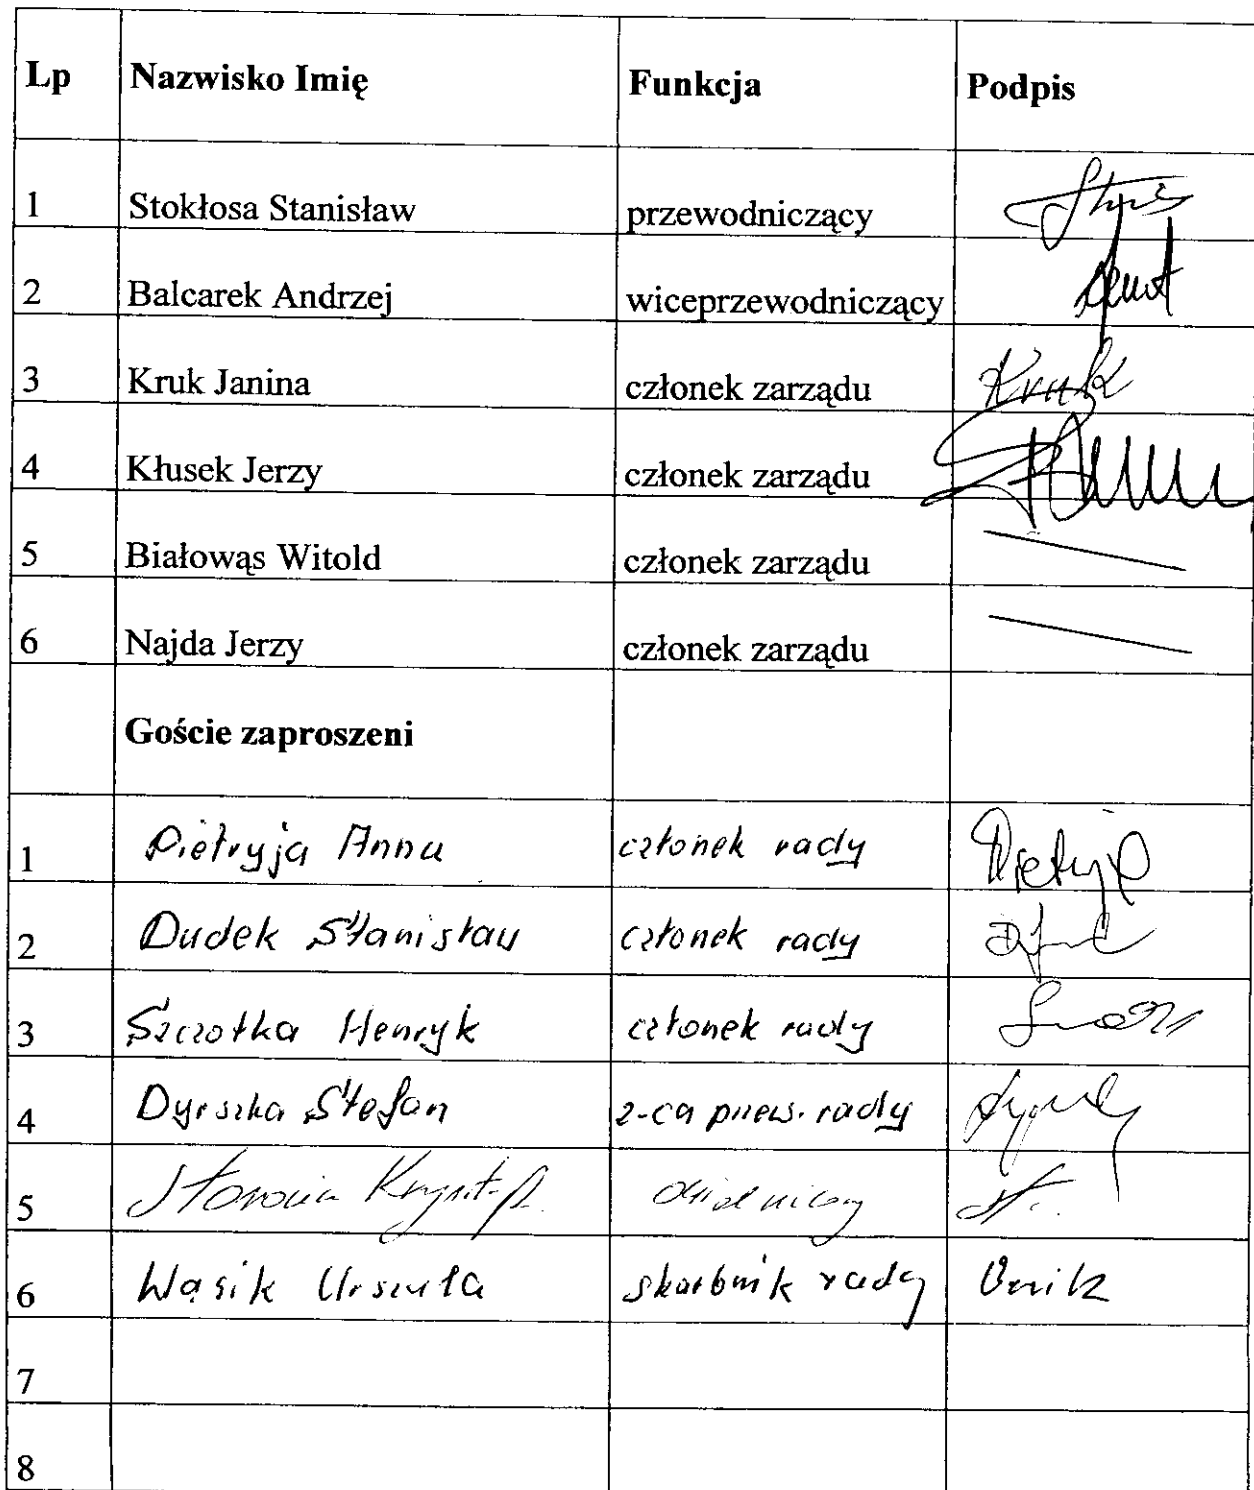 Lp Nazwisko Imię Funkcja Podpis
1 Stokłosa Stanisław przewodniczący
2 Balcarek Andrzej wiceprzewodniczący
3 Kruk Janina członek zarządu Kruk
4 Kłusek Jerzy członek zarządu
5 Białowąs Witold członek zarządu
6 Najda Jerzy członek zarządu
Goście zaproszeni
1 Pietryja Anna członek rady Pietryja
2 Dudek Stanisław członek rady
3 Szczotka Henryk członek rady
4 Dyrszka Stefan z-ca przew. rady
5 dzielnicowy
6 Wąsik Urszula skarbnik rady
7
8